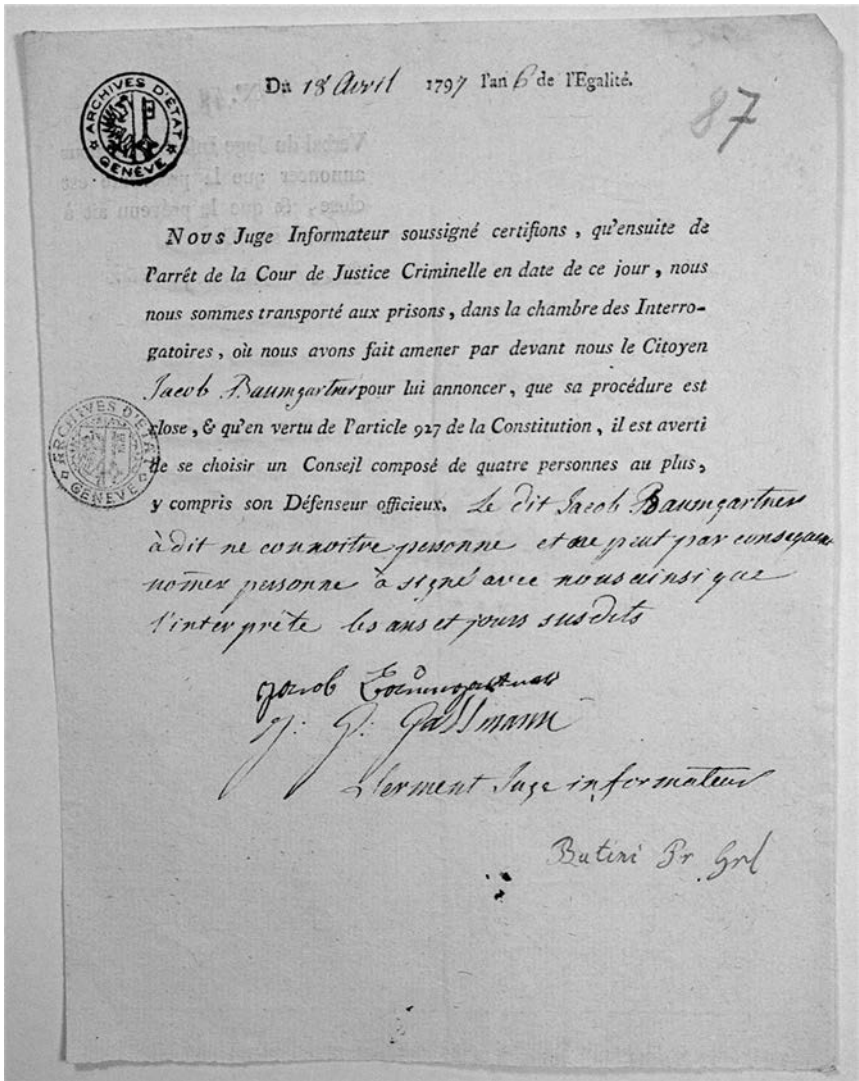 Du 18 Avril 1797 l'an 6 de l'Egalité.
87
ARCHIVES D'ÉTAT
GENÈVE
Nous Juge Informateur soussigné certifions, qu'ensuite de
l'arrêt de la Cour de Justice Criminelle en date de ce jour, nous
nous sommes transporté aux prisons, dans la chambre des Interro-
gatoires, où nous avons fait amener par devant nous le Citoyen
Jacob Baumgartner pour lui annoncer, que sa procédure est
close, & qu'en vertu de l'article 927 de la Constitution, il est averti
de se choisir un Conseil composé de quatre personnes au plus,
y compris son Défenseur officieux. Le dit Jacob Baumgartner
à dit ne connoitre personne et ne peut par consequent
nomer personne à signé avec nous ainsi que
l'interprête les ans et jours susdits
ARCHIVES D'ÉTAT
GENÈVE
Jacob Baumgartner
J: G: Gassmann
Juge informateur
Butini Pr Grl